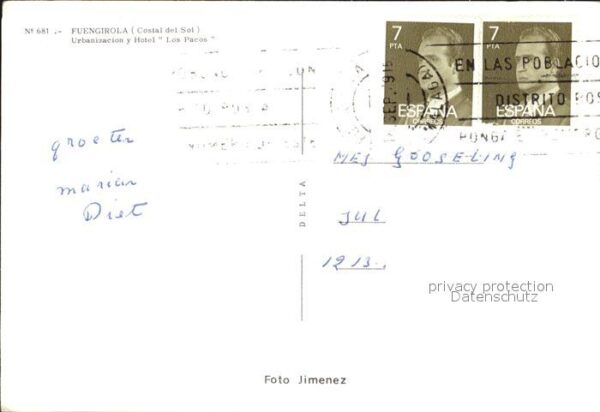 Nº 681 .- FUENGIROLA ( Costal del Sol )
Urbanizacion y Hotel " Los Pacos "
7
PTA
ESPAÑA
CORREOS
7
PTA
ESPAÑA
CORREOS
EN LAS POBLACIO
DISTRITO POS
PONGA
groeten
marian
Diet
DELTA
MES GOOSELING
JUL
1213.
privacy protection
Datenschutz
Foto Jimenez